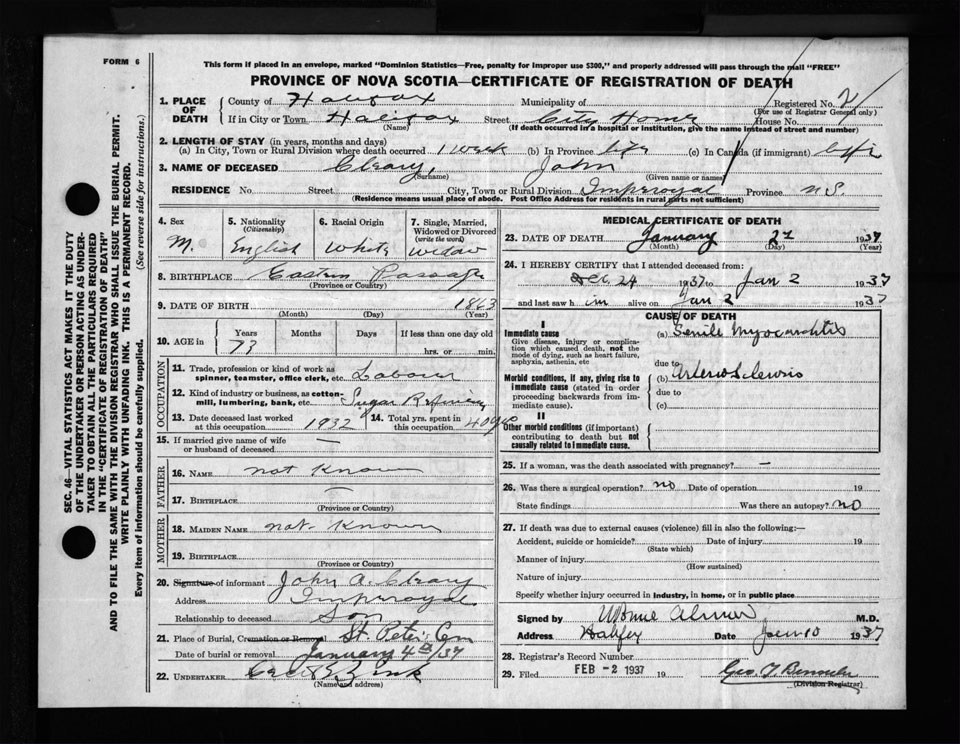 FORM 6
This form if placed in an envelope, marked "Dominion Statistics—Free, penalty for improper use $300," and properly addressed will pass through the mail "FREE"
PROVINCE OF NOVA SCOTIA—CERTIFICATE OF REGISTRATION OF DEATH
SEC. 46—VITAL STATISTICS ACT MAKES IT THE DUTY
OF THE UNDERTAKER OR PERSON ACTING AS UNDER-
TAKER TO OBTAIN ALL THE PARTICULARS REQUIRED
IN THE "CERTIFICATE OF REGISTRATION OF DEATH"
AND TO FILE THE SAME WITH THE DIVISION REGISTRAR WHO SHALL ISSUE THE BURIAL PERMIT.
WRITE PLAINLY WITH UNFADING INK. THIS IS A PERMANENT RECORD.
Every item of information should be carefully supplied. (See reverse side for instructions.)
1. PLACE OF DEATH
County of Halifax Municipality of Registered No. 2
(For use of Registrar General only)
If in City or Town Halifax Street City Home House No.
(Name) (If death occurred in a hospital or institution, give the name instead of street and number)
2. LENGTH OF STAY (in years, months and days)
(a) In City, Town or Rural Division where death occurred 1 week (b) In Province life (c) In Canada (if immigrant) life
3. NAME OF DECEASED Cleary, John
(Surname) (Given name or names)
RESIDENCE No. Street City, Town or Rural Division Imperoyal Province N.S.
(Residence means usual place of abode. Post Office Address for residents in rural parts not sufficient)
4. Sex M.
5. Nationality (Citizenship) English
6. Racial Origin White
7. Single, Married, Widowed or Divorced (write the word) Widow
8. BIRTHPLACE Eastern Passage
(Province or Country)
9. DATE OF BIRTH 1863
(Month) (Day) (Year)
10. AGE in Years 73 Months Days If less than one day old
hrs. or min.
OCCUPATION
11. Trade, profession or kind of work as
spinner, teamster, office clerk, etc. Labour
12. Kind of industry or business, as cotton-
mill, lumbering, bank, etc. Sugar Refinery
13. Date deceased last worked
at this occupation 1932
14. Total yrs. spent in
this occupation 40 yrs
15. If married give name of wife
or husband of deceased —
FATHER
16. NAME not known
17. BIRTHPLACE —
(Province or Country)
MOTHER
18. MAIDEN NAME not known
19. BIRTHPLACE
(Province or Country)
20. Signature of informant John A. Cleary
Address Imperoyal
Relationship to deceased Son
21. Place of Burial, Cremation or Removal St. Peter's Cem
Date of burial or removal January 4th/37
22. UNDERTAKER Cecil E. Zink
(Name and address)
MEDICAL CERTIFICATE OF DEATH
23. DATE OF DEATH January 2nd 1937
(Month) (Day)
24. I HEREBY CERTIFY that I attended deceased from:
Dec. 24 1937 to Jan 2 1937
and last saw him alive on Jan 2 1937
CAUSE OF DEATH
I
Immediate cause
Give disease, injury or complica-
tion which caused death, not the
mode of dying, such as heart failure,
asphyxia, asthenia, etc
(a) Senile Myocarditis
due to
Morbid conditions, if any, giving rise to
immediate cause (stated in order
proceeding backwards from im-
mediate cause).
(b) Arteriosclerosis
due to
(c)
II
Other morbid conditions (if important)
contributing to death but not
causally related to immediate cause.
25. If a woman, was the death associated with pregnancy? —
26. Was there a surgical operation? no Date of operation 19
State findings Was there an autopsy? no
27. If death was due to external causes (violence) fill in also the following:—
Accident, suicide or homicide? Date of injury 19
(State which)
Manner of injury
(How sustained)
Nature of injury
Specify whether injury occurred in industry, in home, or in public place
Signed by Almon M.D.
Address Halifax Date Jan 10 1937
28. Registrar's Record Number
29. Filed FEB -2 1937 19 Geo. T.
(Division Registrar)